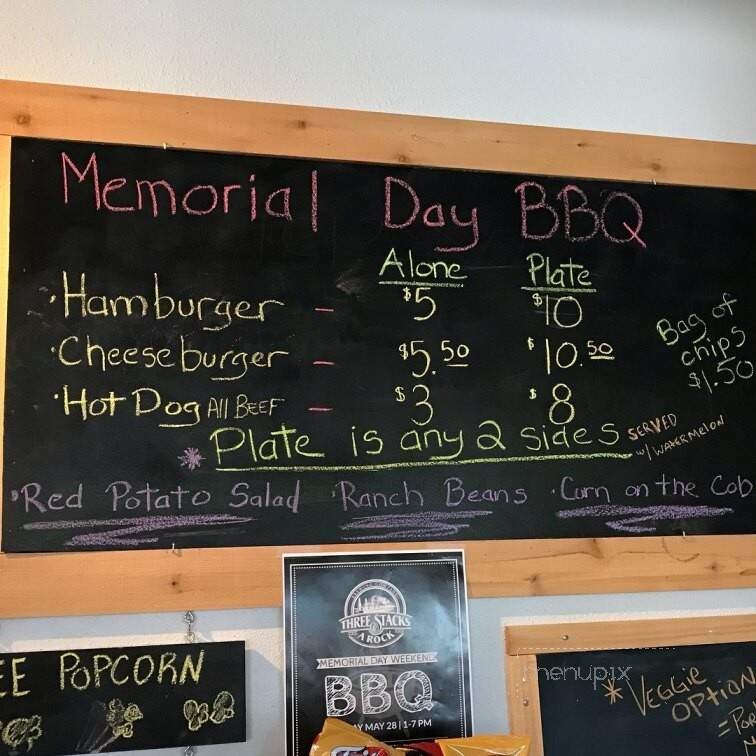 Memorial Day BBQ
Alone Plate
·Hamburger - $5 $10
·Cheeseburger - $5.50 $10.50
·Hot Dog All Beef - $3 $8
Bag of
chips
$1.50
*Plate is any 2 sides
SERVED
w/ WATERMELON
·Red Potato Salad ·Ranch Beans ·Curn on the Cob
EE POPCORN
THREE STACKS
& A ROCK
MEMORIAL DAY WEEKEND
BBQ
AY MAY 28 | 1-7 PM
menupix
* VEGGIE
OPTION